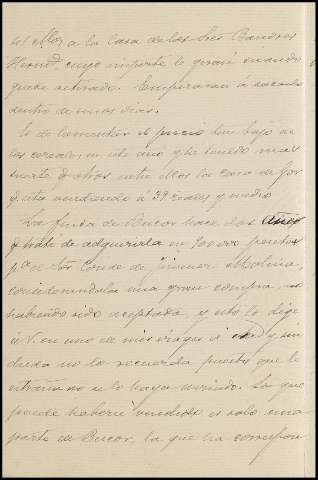 á la Casa de los Tres Bandres
Hernd, cuyo importe le giraré cuando
quede retirado. Empezaran á sacarla
dentro de unos dias.
Es de lamentar el precio tan bajo de
los cereales, en este año y ha tenido mas
suerte q otros, entre ellos la casa de
q esta vendiendo á 39 reales y medio
La finca de Bucor hace dos años
q trate de adquirirla en 900.000 pesetas
Conde de Molina,
considerandola una gran compra, no
habiendo sido aceptada, y esto lo dije
á V. en uno de mis viages á y sin
duda no lo recuerda puesto que le
estraña no se le haya ofrecido. Lo que
puede haberse vendido es solo una
parte de Bucor, la que ha correspon